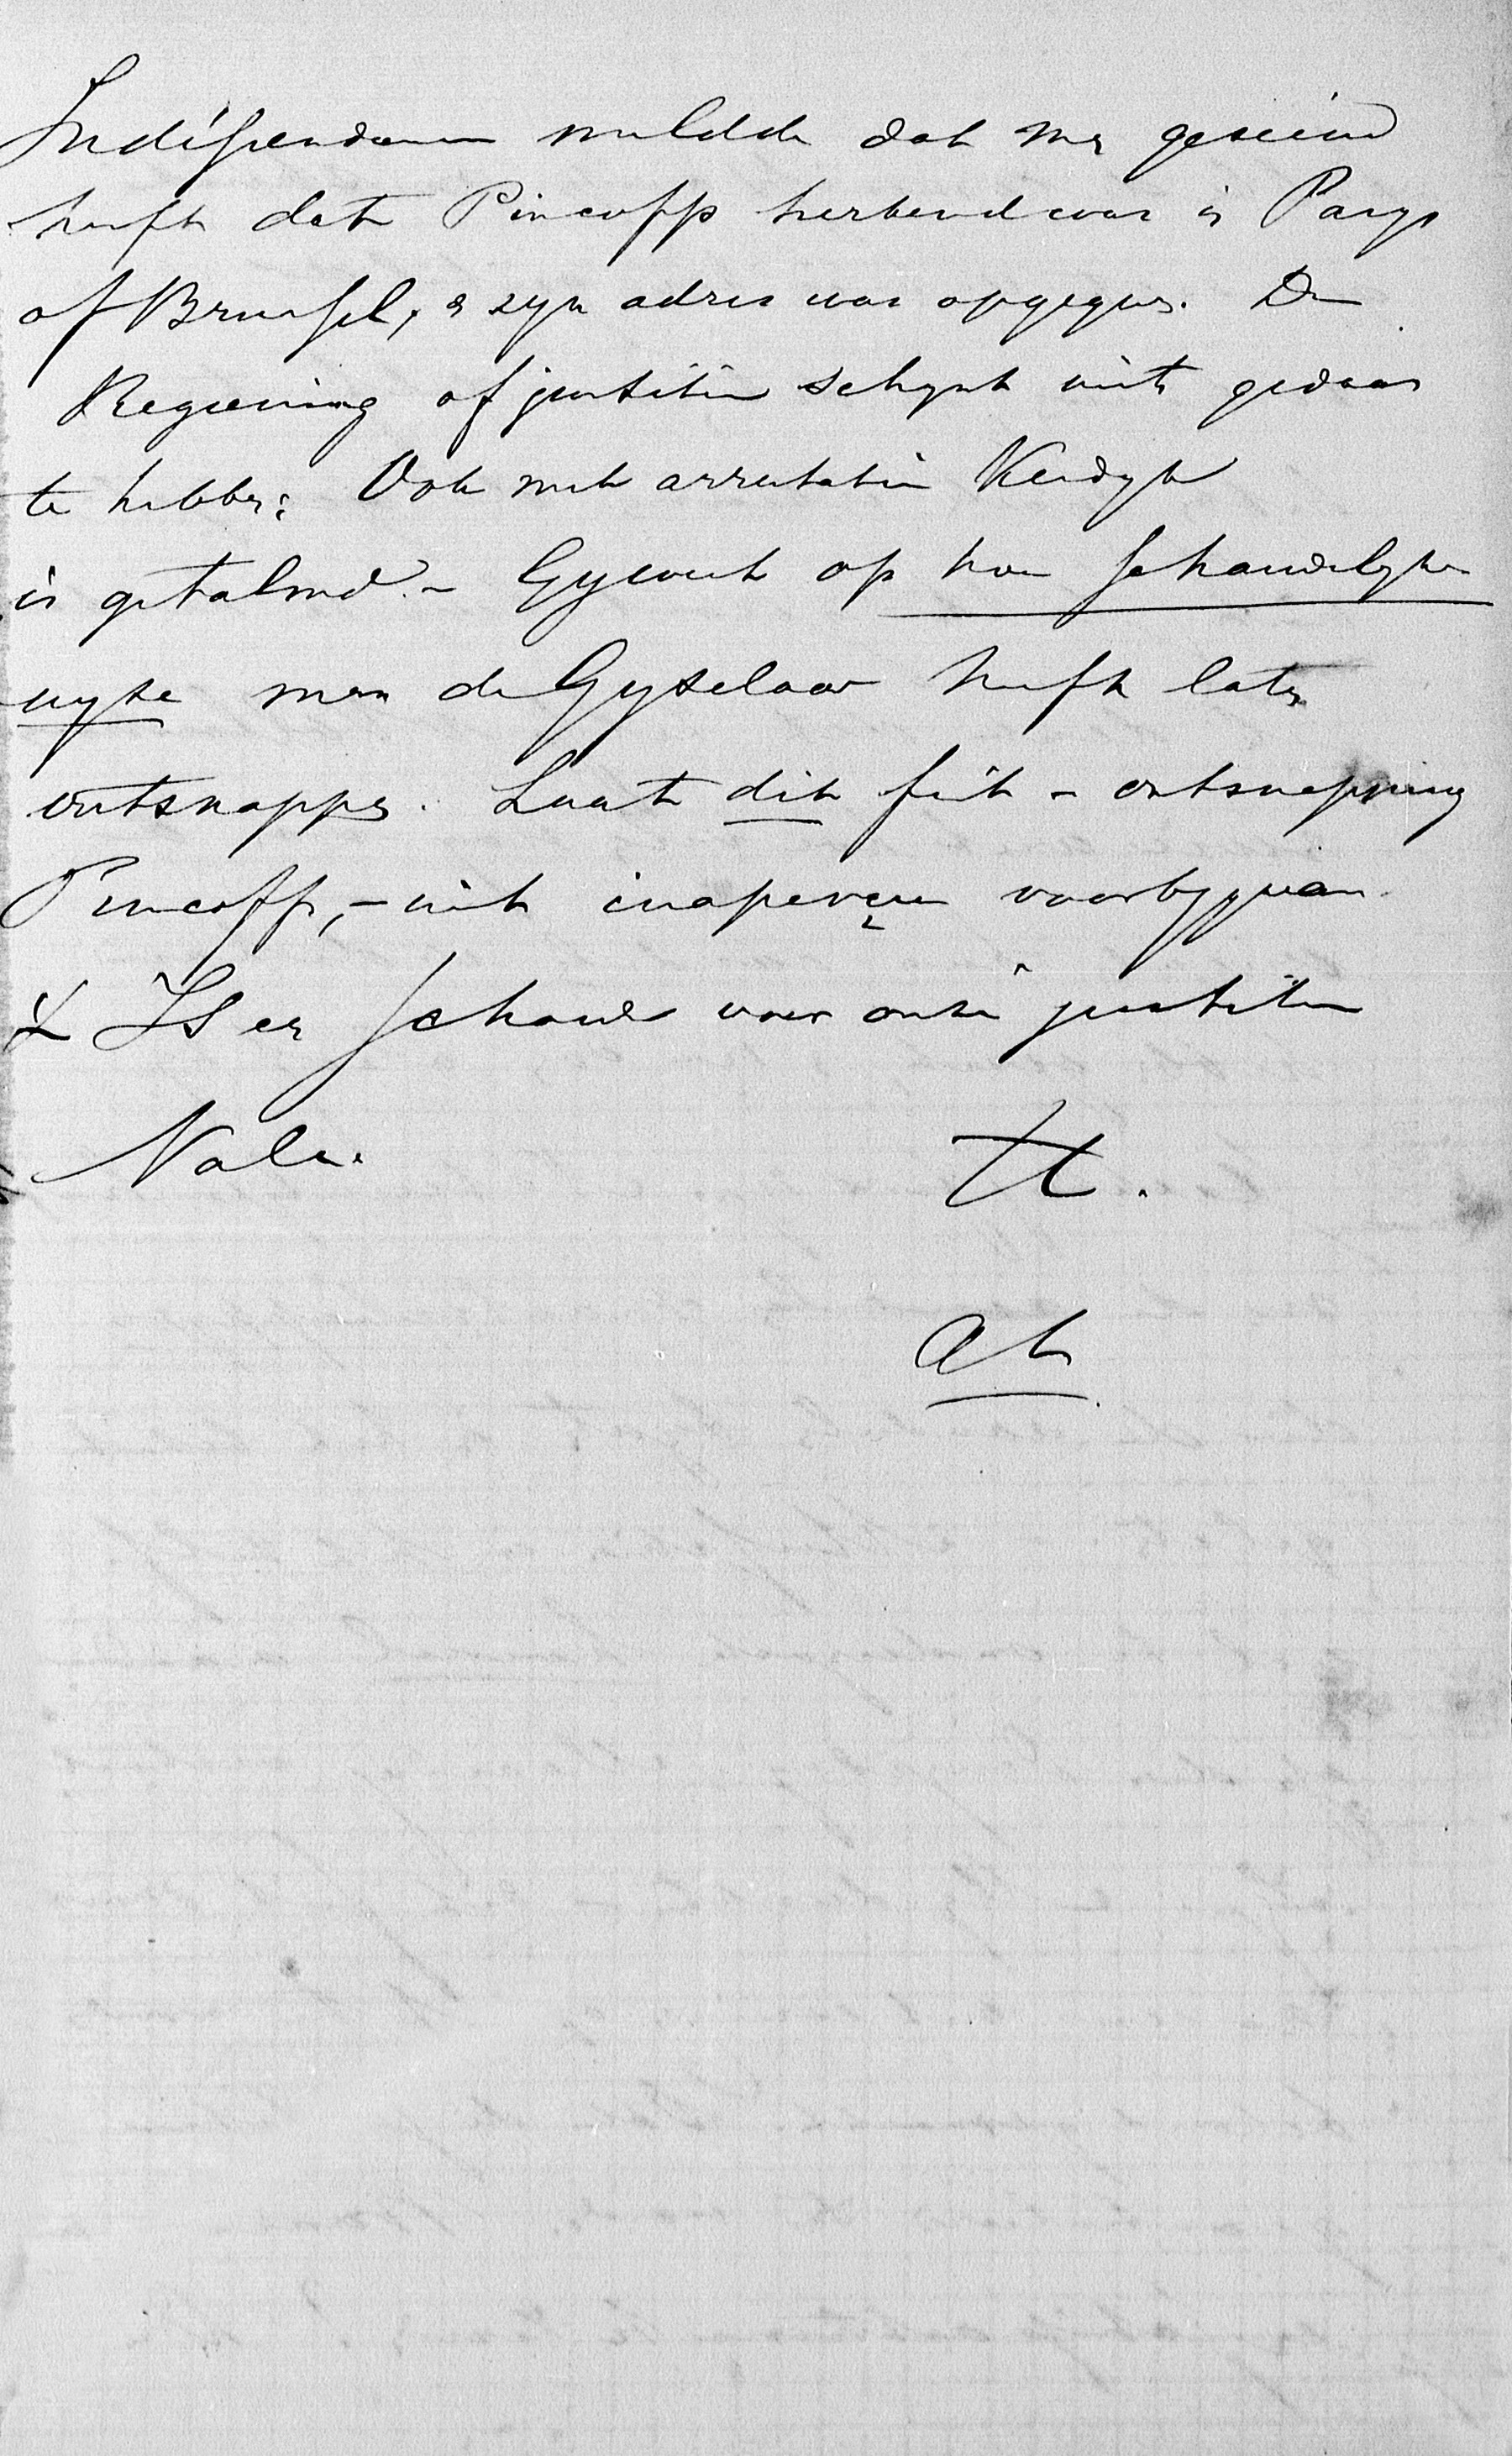 Indépendance meldde dat men geseind
heeft dat Pincoffs herkend was in Parys
of Brussel, & zyn adres was opgegeven. De
Regeering of justitie schynt niets gedaan
te hebben. Ook met arrestatie Kerdyk
is getalmd. - Gy weet op hoe schandelyke
wyze men de Gyselaar heeft laten
ontsnappen. Laat dit feit - ontsnapping
Pincoffs, - niet inaperçu voorbygaan.
Is er schande voor onze justitie
Vale. tt.
AK